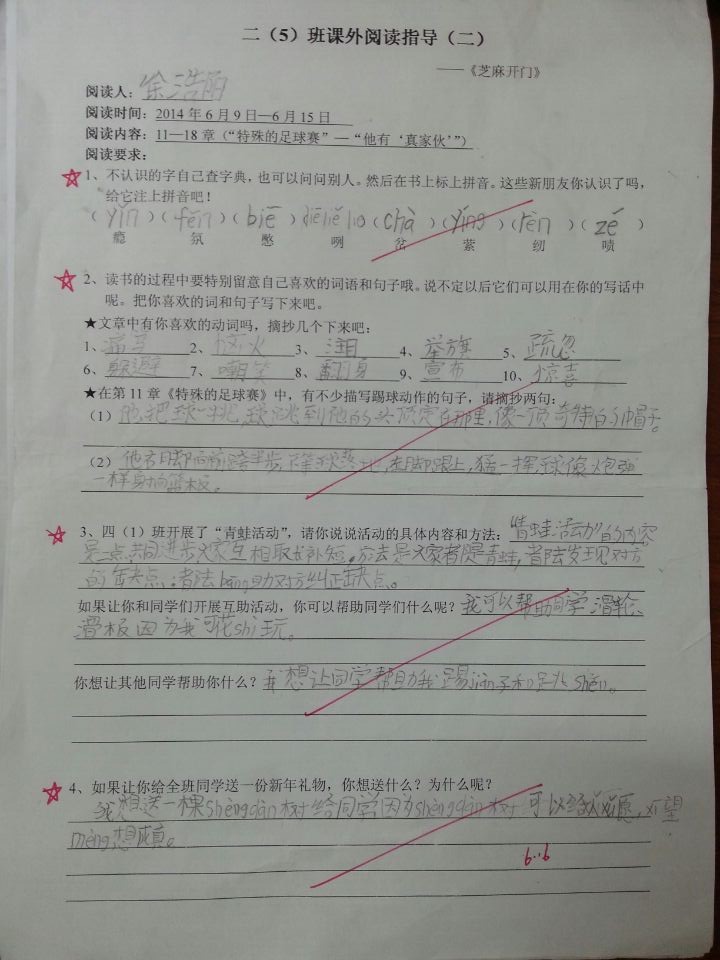 二（5）班课外阅读指导（二）
——《芝麻开门》
阅读人：徐浩丽
阅读时间：2014年6月9日—6月15日
阅读内容：11—18章（“特殊的足球赛”—“他有‘真家伙’”）
阅读要求：
1、不认识的字自己查字典，也可以问问别人。然后在书上标上拼音。这些新朋友你认识了吗，
给它注上拼音吧！
（yǐn）（fēn）（biē）（chà）（yíng）（rèn）（zé）
瘾 氛 憋 咧 岔 萦 纫 啧
2、读书的过程中要特别留意自己喜欢的词语和句子哦。说不定以后它们可以用在你的写话中
呢。把你喜欢的词和句子写下来吧。
★文章中有你喜欢的动词吗，摘抄几个下来吧：
1、 2、 3、注目 4、举旗 5、疏忽
6、躲避 7、嘲笑 8、翻身 9、宣布 10、惊喜
★在第11章《特殊的足球赛》中，有不少描写踢球动作的句子，请摘抄两句：
（1）他把球一挑，球跳到他的头顶定在那里，像一顶奇特的小帽子。
（2）他右脚向前跨半步，等球落地，左脚跟上，猛一挥，球像炮弹
一样射向篮板。
3、四（1）班开展了“青蛙活动”，请你说说活动的具体内容和方法：“青蛙活动”的内容
是二点共同进步大家互相取长补短。方法是大家都是青蛙，首先发现对方
的缺点，者法bāng助对方纠正缺点。
如果让你和同学们开展互助活动，你可以帮助同学们什么呢？我可以帮助同学滑轮、
滑板因为我可花shi玩。
你想让其他同学帮助你什么？我想让同学帮助我踢jiàn子和足北shēn。
4、如果让你给全班同学送一份新年礼物，你想送什么？为什么呢？
我想送一棵shèngdàn树给同学因为shèngdàn树可以给人愿，希望
mèng想成真。
6..6